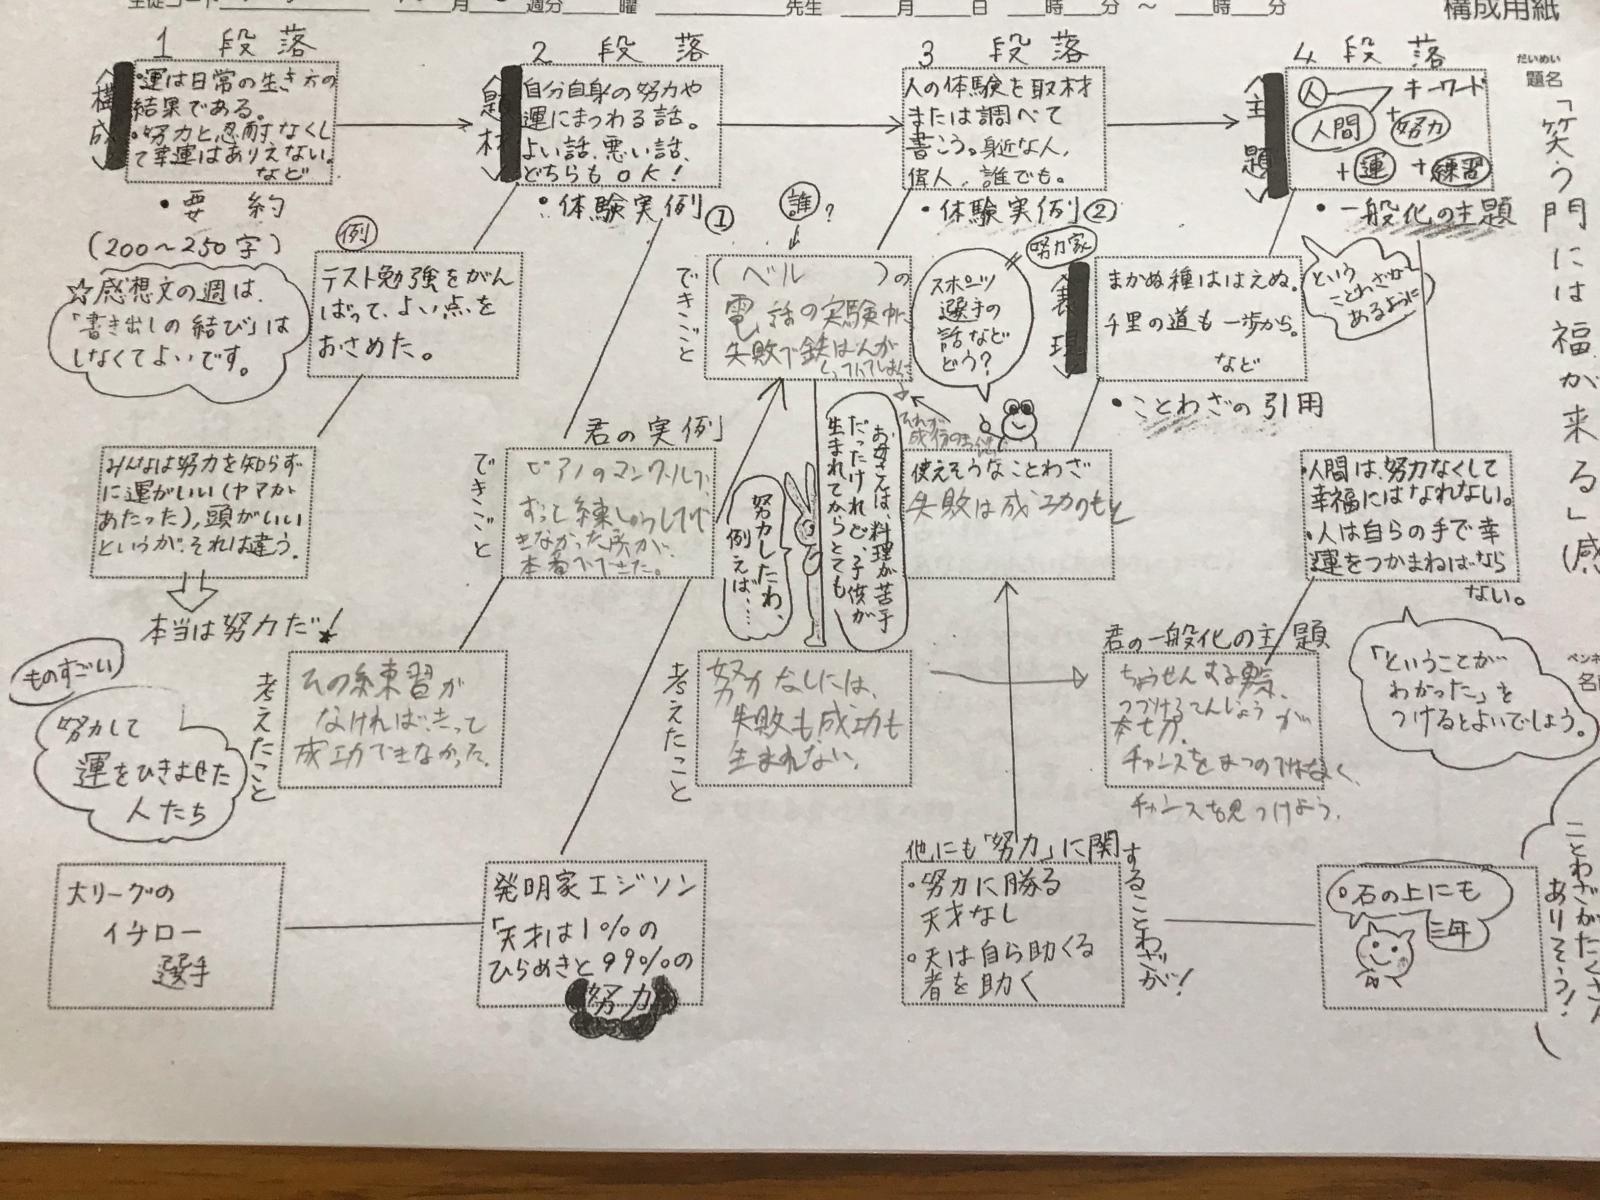 生徒コード 月 週分 曜 先生 月 日 時 分 ~ 時 分
構成用紙
だいめい
題名
「笑う門には福が来る」(感
1 段落
<構成>
・運は日常の生き方の
結果である。
・努力と忍耐なくし
て幸運はありえない。
など
・要約
(200~250字)
☆感想文の週は、
「書き出しの結び」は
しなくてよいです。
2 段落
<題材>
自分自身の努力や
運にまつわる話。
よい話、悪い話、
どちらもOK!
・体験実例①
例
テスト勉強をがん
ばって、よい点を
おさめた。
みんなは努力を知らず
に運がいい(ヤマが
あたった)、頭がいい
というが、それは違う。
本当は努力だ!
3 段落
人の体験を取材
または調べて
書こう。身近な人、
偉人、誰でも。
・体験実例②
誰?
できごと
(ベル )の
電話の実験中に
失敗で
スポーツ
選手の
話など
どう?
=努力家
4 段落
<主題>
人 キーワード
人間 + 努力
+ 運 + 練習
・一般化の主題
<表現>
まかぬ種ははえぬ。
千里の道も一歩から。
など
・ことわざの引用
という
ことわざが
あるように
君の実例
できごと
ピアノの
ずっと練しゅうしてて
できなかった所が、
本番でできた。
努力したわ、
例えば、…
お母さんは、料理が苦手
だったけれど、子供が
生まれてからとても
使えそうなことわざ
失敗は成功のもと
・人間は、努力なくして
幸福にはなれない。
・人は自らの手で幸
運をつかまねばなら
ない。
「ということが
わかった」を
つけるとよいでしょう。
ものすごい
努力して
運をひきよせた
人たち
考えたこと
その練習が
なければ、きっと
成功できなかった。
考えたこと
努力なしには、
失敗も成功も
生まれない。
君の一般化の主題
ちょうせんする勇気、
つづける
チャンスをまつのではなく、
チャンスを見つけよう。
大リーグの
イチロー
選手
発明家エジソン
「天才は1%の
ひらめきと99%の
努力
他にも「努力」に関
することわざが!
・努力に勝る
天才なし
・天は自ら助くる
者を助く
・石の上にも
三年
ことわざがたくさん
ありそう!